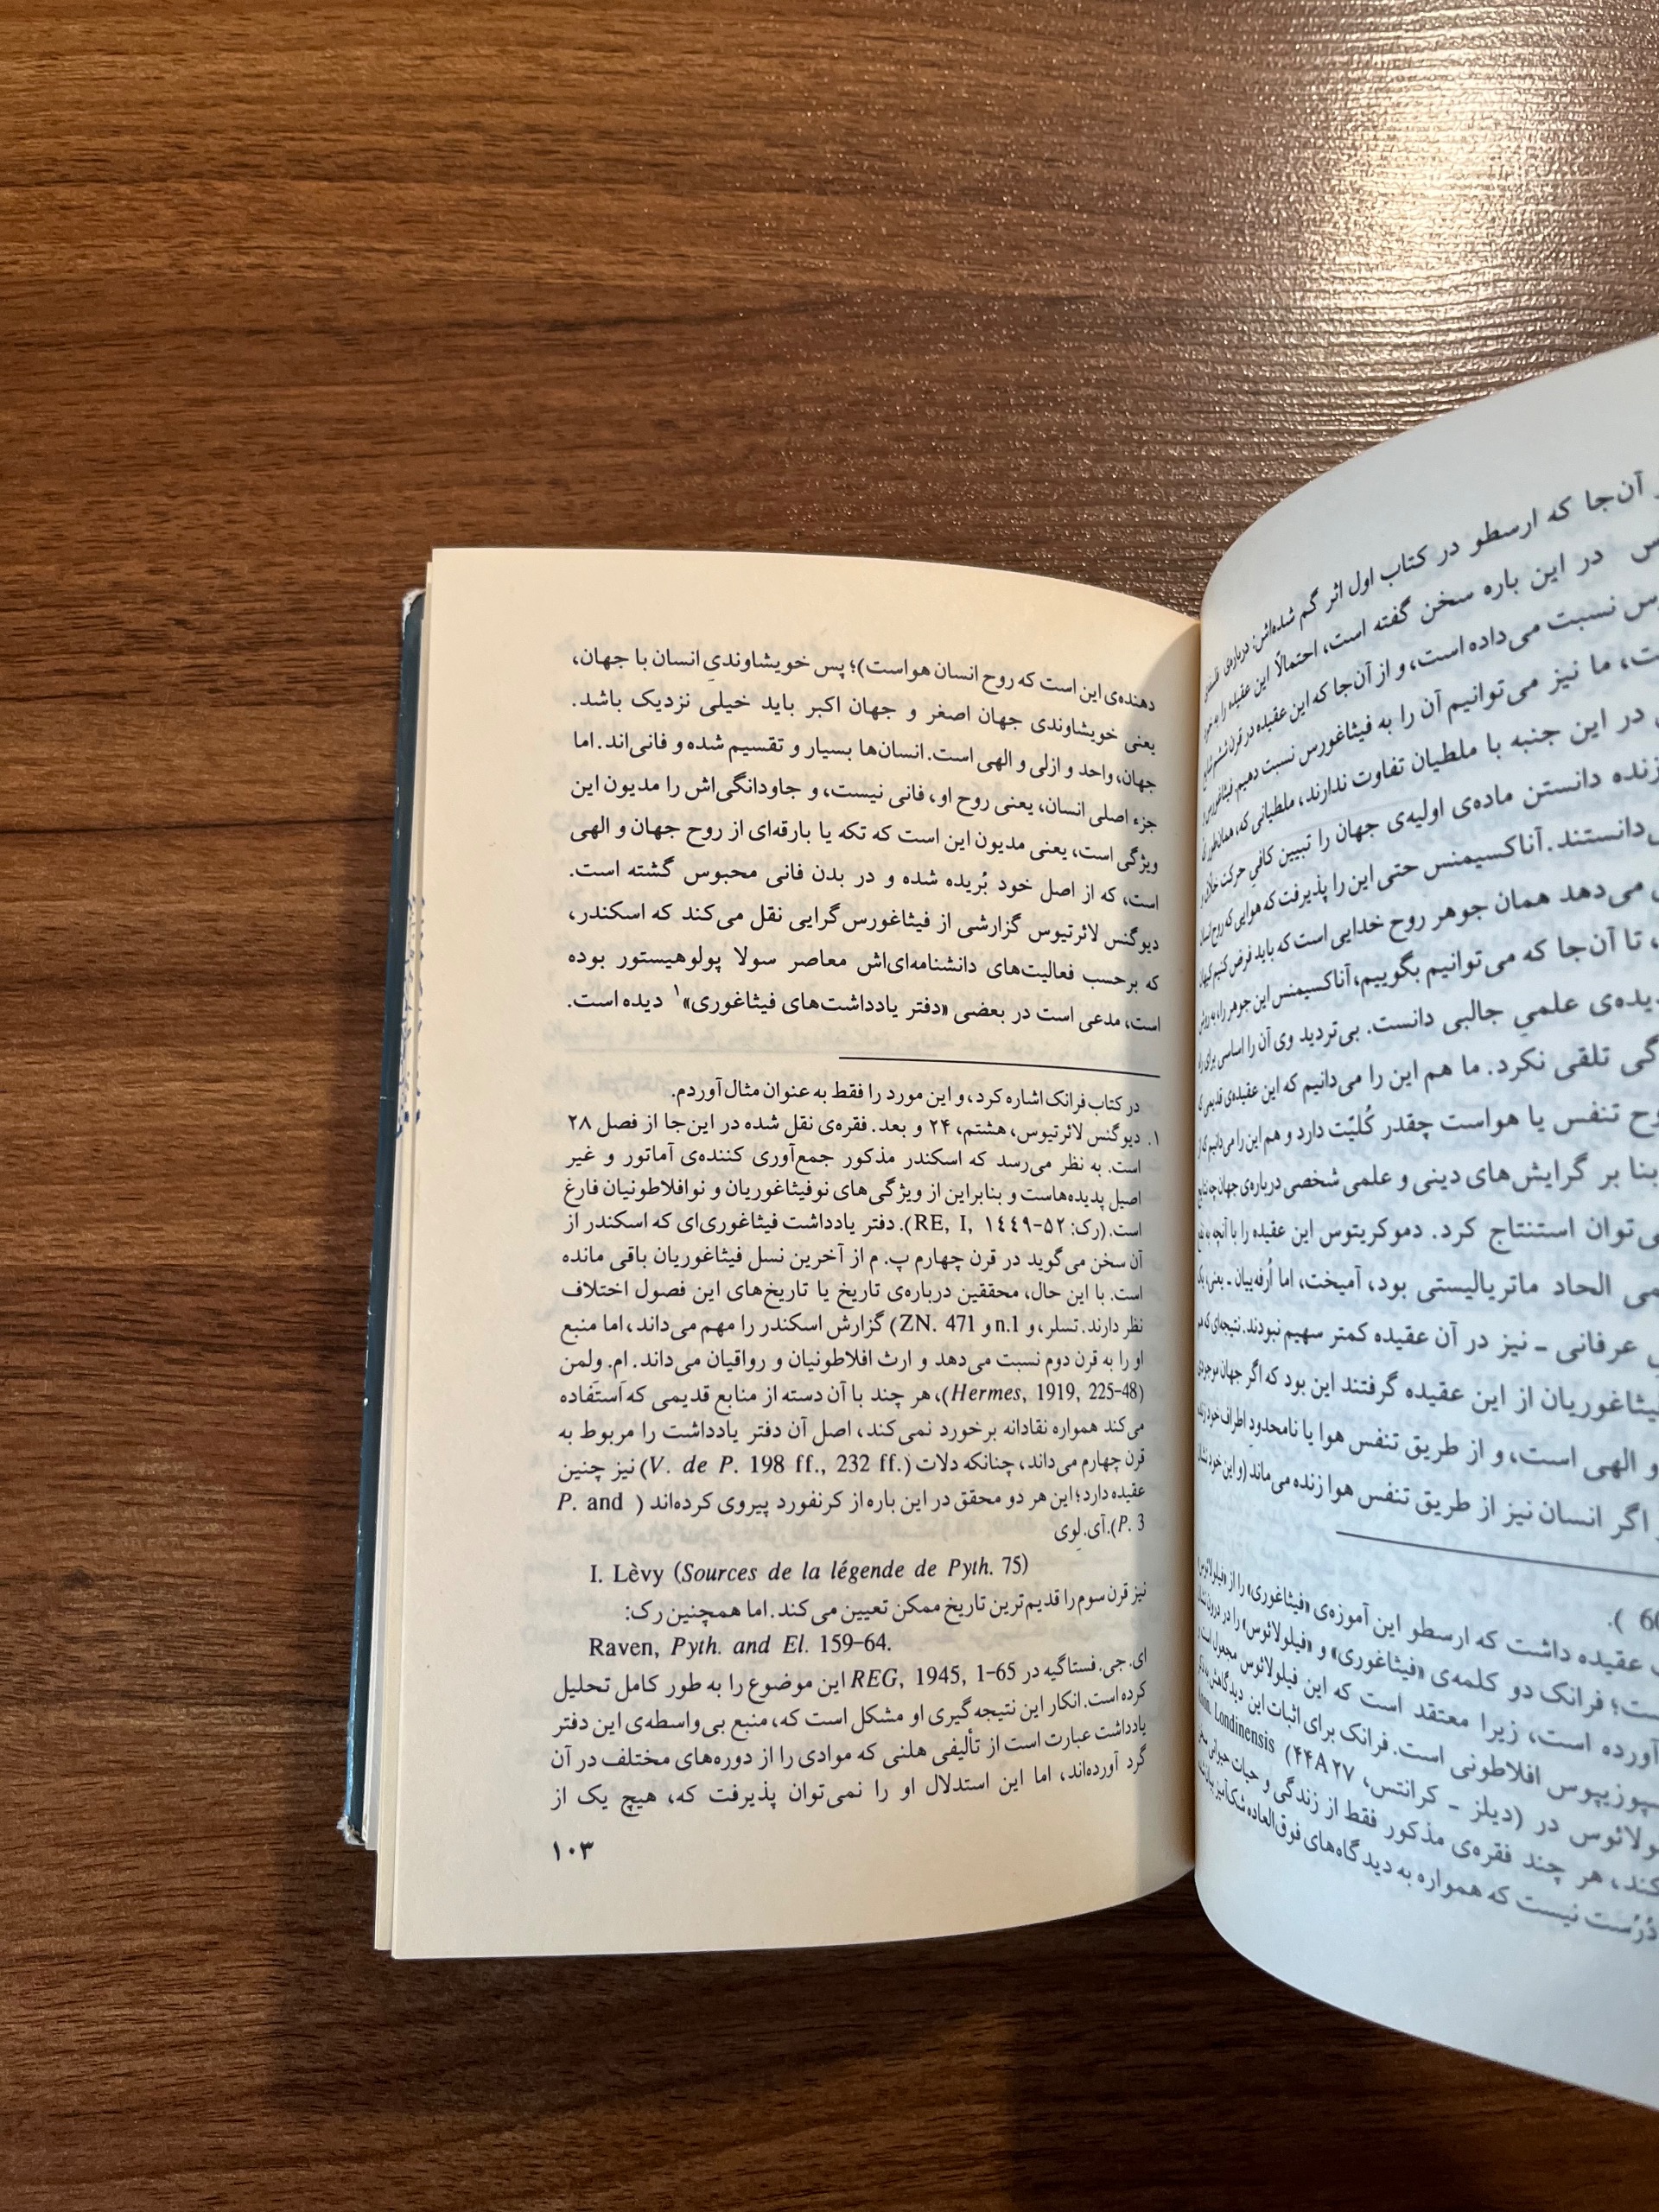 آن‌جا که ارسطو در کتاب اول اثر گم شده‌اش، درباره‌ی
در این باره سخن گفته است، احتمالاً این عقیده را به
نسبت می‌داده است، و از آن‌جا که این عقیده در قرن ششم
ما نیز می‌توانیم آن را به فیثاغورس نسبت دهیم.
در این جنبه با ملطیان تفاوت ندارند، ملطیانی که، همان‌طور که
زنده دانستن ماده‌ی اولیه‌ی جهان را تبیین کافیِ حرکت
آناکسیمنس حتی این را پذیرفت که هوایی که روح انسان
می‌دهد همان جوهر روح خدایی است که باید فرض کنیم کیهان
تا آن‌جا که می‌توانیم بگوییم، آناکسیمنس این جوهر را، به روش
علمیِ جالبی دانست. بی‌تردید وی آن را اساسی برای
تلقی نکرد. ما هم این را می‌دانیم که این عقیده‌ی قدیمی که
تنفس یا هواست چقدر کُلیّت دارد و هم این را می‌دانیم که از
بنا بر گرایش‌های دینی و علمی شخصی درباره‌ی جهان چه نتایج
توان استنتاج کرد. دموکریتوس این عقیده را با آنچه به
الحاد ماتریالیستی بود، آمیخت، اما اُرفه‌ییان ـ یعنی، یک
عرفانی ـ نیز در آن عقیده کمتر سهیم نبودند. نتیجه‌ای که
از این عقیده گرفتند این بود که اگر جهان موجودی
و الهی است، و از طریق تنفس هوا یا نامحدودِ اطراف خود زنده
اگر انسان نیز از طریق تنفس هوا زنده می‌ماند (و این خود نشان
عقیده داشت که ارسطو این آموزه‌ی «فیثاغوری» را از فیلولائوس
فرانک دو کلمه‌ی «فیثاغوری» و «فیلولائوس» را در درون
آورده است، زیرا معتقد است که این فیلولائوس مجعول است و
افلاطونی است. فرانک برای اثبات این دیدگاهش به
در (دیلز ـ کرانتس، ۴۴A۲۷) Londinensis
کند، هر چند فقره‌ی مذکور فقط از زندگی و حیات حیوانی
دُرُست نیست که همواره به دیدگاه‌های فوق‌العاده شک‌آمیز
دهنده‌ی این است که روح انسان هواست)؛ پس خویشاوندیِ انسان با جهان،
یعنی خویشاوندی جهان اصغر و جهان اکبر باید خیلی نزدیک باشد.
جهان، واحد و ازلی و الهی است. انسان‌ها بسیار و تقسیم شده و فانی‌اند. اما
جزء اصلی انسان، یعنی روح او، فانی نیست، و جاودانگی‌اش را مدیون این
ویژگی است، یعنی مدیون این است که تکه یا بارقه‌ای از روح جهان و الهی
است، که از اصل خود بُریده شده و در بدن فانی محبوس گشته است.
دیوگنس لائرتیوس گزارشی از فیثاغورس‌گرایی نقل می‌کند که اسکندر،
که برحسب فعالیت‌های دانشنامه‌ای‌اش معاصر سولا پولوهیستور بوده
است، مدعی است در بعضی «دفتر یادداشت‌های فیثاغوری»۱ دیده است.
در کتاب فرانک اشاره کرد، و این مورد را فقط به عنوان مثال آوردم.
۱. دیوگنس لائرتیوس، هشتم، ۲۴ و بعد. فقره‌ی نقل شده در این‌جا از فصل ۲۸
است. به نظر می‌رسد که اسکندر مذکور جمع‌آوری کننده‌ی آماتور و غیر
اصیل پدیده‌هاست و بنابراین از ویژگی‌های نوفیثاغوریان و نوافلاطونیان فارغ
است. (رک: RE, I, ۱۴۴۹-۵۲). دفتر یادداشت فیثاغوری‌ای که اسکندر از
آن سخن می‌گوید در قرن چهارم پ. م از آخرین نسل فیثاغوریان باقی مانده
است. با این حال، محققین درباره‌ی تاریخ یا تاریخ‌های این فصول اختلاف
نظر دارند. تسلر، و n.1 و ZN. 471) گزارش اسکندر را مهم می‌داند، اما منبع
او را به قرن دوم نسبت می‌دهد و ارث افلاطونیان و رواقیان می‌داند. ام. ولمن
(Hermes, 1919, 225-48)، هر چند با آن دسته از منابع قدیمی که اَستَفاده
می‌کند همواره نقادانه برخورد نمی‌کند، اصل آن دفتر یادداشت را مربوط به
قرن چهارم می‌داند، چنانکه دلات (V. de P. 198 ff., 232 ff.) نیز چنین
عقیده دارد؛ این هر دو محقق در این باره از کرنفورد پیروی کرده‌اند ( P. and
P. 3). آی. لِوی
I. Lèvy (Sources de la légende de Pyth. 75)
نیز قرن سوم را قدیم‌ترین تاریخ ممکن تعیین می‌کند. اما همچنین رک:
Raven, Pyth. and El. 159-64.
ای. جی. فستاگیه در REG, 1945, 1-65 این موضوع را به طور کامل تحلیل
کرده است. انکار این نتیجه‌گیری او مشکل است که، منبع بی‌واسطه‌ی این دفتر
یادداشت عبارت است از تألیفی هلنی که موادی را از دوره‌های مختلف در آن
گرد آورده‌اند، اما این استدلال او را نمی‌توان پذیرفت که، هیچ یک از
۱۰۳